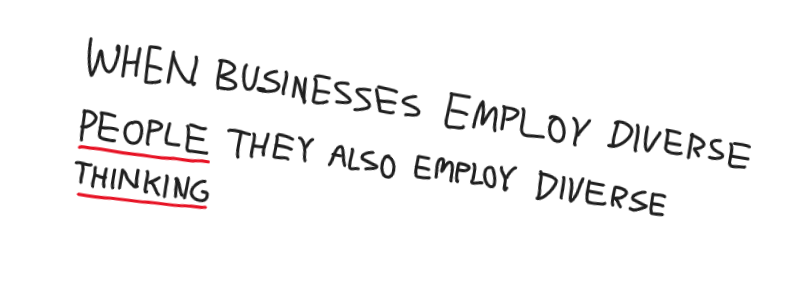 WHEN BUSINESSES EMPLOY DIVERSE
PEOPLE THEY ALSO EMPLOY DIVERSE
THINKING